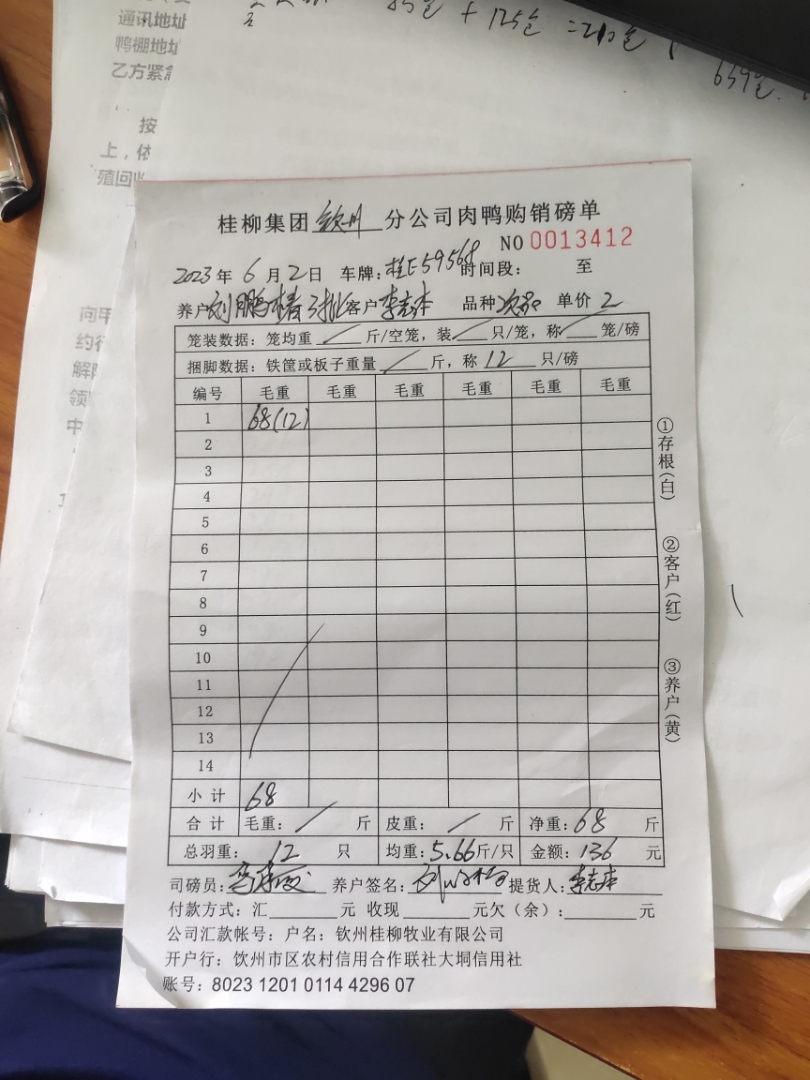 通讯地址
鸭棚地址
乙方紧急
85仓 + 125仓 = 210仓
659仓
按
上，依
殖回收
向甲
约行
解除
领
中
桂柳集团 钦州 分公司肉鸭购销磅单
NO 0013412
2023 年 6 月 2 日 车牌：桂E59568 时间段： 至
养户 刘鹏椿 客户 李志本 品种 次品 单价 2
笼装数据：笼均重 / 斤/空笼，装 / 只/笼，称 / 笼/磅
捆脚数据：铁筐或板子重量 / 斤，称 12 只/磅
编号 毛重 毛重 毛重 毛重 毛重 毛重
1 68(12)
2
3
4
5
6
7
8
9
10
11
12
13
14
小计 68
合计 毛重： / 斤 皮重： / 斤 净重：68 斤
总羽重： 12 只 均重：5.66斤/只 金额：136 元
司磅员： 养户签名： 提货人：李志本
付款方式：汇 元 收现 元欠（余）： 元
公司汇款帐号：户名：钦州桂柳牧业有限公司
开户行：饮州市区农村信用合作联社大垌信用社
账号：8023 1201 0114 4296 07
①存根（白）
②客户（红）
③养户（黄）